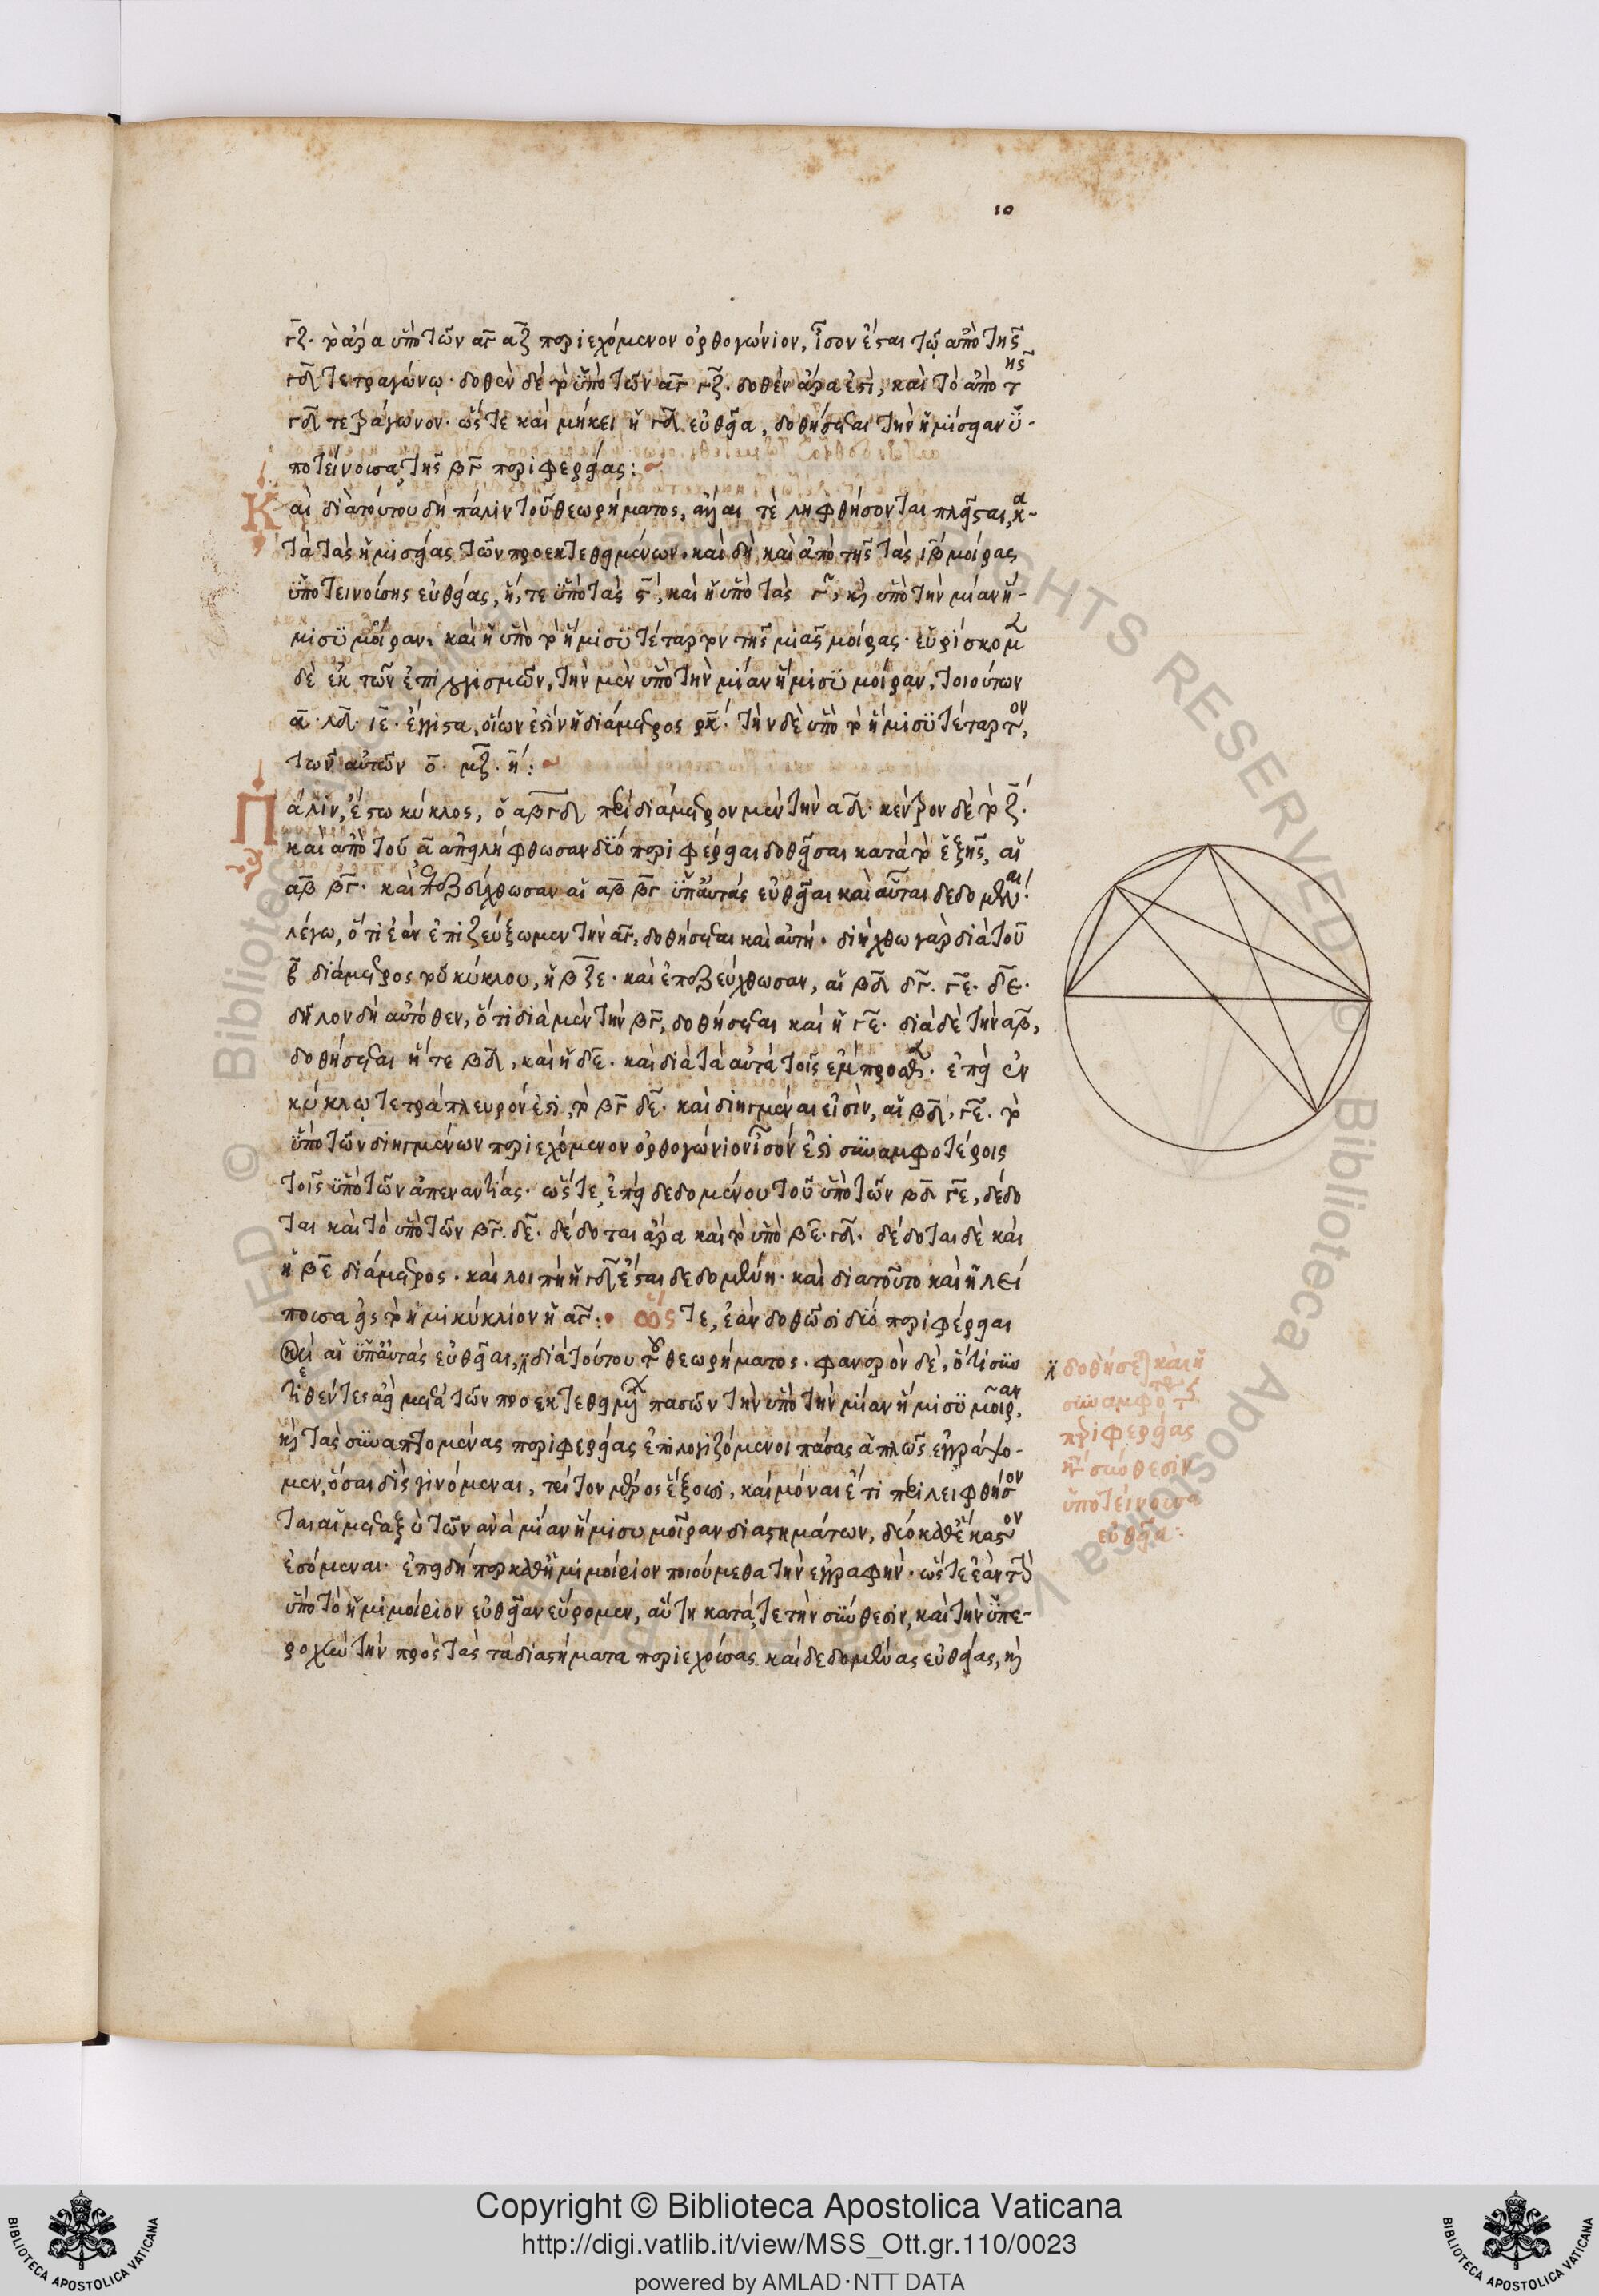 10
γζ. τὸ ἄρα ὑπὸ τῶν αγ αζ περιεχόμενον ὀρθογώνιον, ἴσον ἔσται τῷ ἀπὸ τῆς
γδ τετραγώνῳ. δοθὲν δὲ τὸ ὑπὸ τῶν αγ γζ. δοθὲν ἄρα ἐστὶ, καὶ τὸ ἀπὸ τῆς
γδ τετράγωνον. ὥστε καὶ μήκει ἡ γδ εὐθεῖα, δοθήσεται τὴν ἡμίσειαν ὑ-
ποτείνουσα τῆς βγ περιφερείας:
Καὶ διὰ τούτου δὴ πάλιν τοῦ θεωρήματος, ἄλλαι τὲ ληφθήσονται πλεῖσται, κα-
τὰ τὰς ἡμισείας τῶν προεκτεθειμένων. καὶ δὴ καὶ ἀπὸ τῆς τὰς ιβ μοίρας
ὑποτεινούσης εὐθείας, ἥ, τε ὑπὸ τὰς ς, καὶ ἡ ὑπὸ τὰς γ, κ ὑπὸ τὴν μίαν ἥ-
μισυ μοῖραν. καὶ ἡ ὑπὸ τὸ ἥμισυ τέταρτον τῆς μιᾶς μοίρας. εὑρίσκομεν
δὲ ἐκ τῶν ἐπιλογισμῶν, τὴν μὲν ὑπὸ τὴν μίαν ἥμισυ μοῖραν, τοιούτων
α. λδ. ιε. ἔγγιστα, οἵων ἐστὶν ἡ διάμετρος ρκ. τὴν δὲ ὑπὸ τὸ ἥμισυ τέταρτον,
τῶν αὐτῶν ο. μζ. η:
Πάλιν, ἔστω κύκλος, ὁ αβγδ περὶ διάμετρον μὲν τὴν αδ. κέντρον δὲ τὸ ζ.
καὶ ἀπὸ τοῦ α ἀπειλήφθωσαν δύο περιφέρειαι δοθεῖσαι κατὰ τὸ ἑξῆς, αἱ
αβ βγ. καὶ ἐπεζεύχθωσαν αἱ αβ βγ ὑπ' αὐτὰς εὐθεῖαι καὶ αὗται δεδομέναι.
λέγω, ὅτι ἐὰν ἐπιζεύξωμεν τὴν αγ, δοθήσεται καὶ αὐτή. διήχθω γὰρ διὰ τοῦ
β διάμετρος τοῦ κύκλου, ἡ βζε. καὶ ἐπεζεύχθωσαν, αἱ βδ δγ. γε. δε.
δῆλον δὴ αὐτόθεν, ὅτι διὰ μὲν τὴν βγ, δοθήσεται καὶ ἡ γε. διὰ δὲ τὴν αβ,
δοθήσεται ἥ τε βδ, καὶ ἡ δε. καὶ διὰ τὰ αὐτὰ τοῖς ἔμπροσθεν. ἐπεὶ ἐν
κύκλῳ τετράπλευρόν ἐστι, τὸ βγ δε. καὶ διηγμέναι εἰσὶν, αἱ βδ, γε. τὸ
ὑπὸ τῶν διηγμένων περιεχόμενον ὀρθογώνιον ἴσον ἐστὶ συναμφοτέροις
τοῖς ὑπὸ τῶν ἀπεναντίας. ὥστε, ἐπεὶ δεδομένου τοῦ ὑπὸ τῶν βδ γε, δέδο
ται καὶ τὸ ὑπὸ τῶν βγ. δε. δέδοται ἄρα καὶ τὸ ὑπὸ βε. γδ. δέδοται δὲ καὶ
ἡ βε διάμετρος. καὶ λοιπὴ ἡ γδ ἔσται δεδομένη. καὶ διατοῦτο καὶ ἡ λεί
πουσα εἰς τὸ ἡμικύκλιον ἡ αγ: ὥστε, ἐὰν δοθῶσι δύο περιφέρειαι
καὶ αἱ ὑπ' αὐτὰς εὐθεῖαι, διὰ τούτου τοῦ θεωρήματος. φανερὸν δὲ, ὅτι συν
τιθέντες ἀεὶ μετὰ τῶν προεκτεθειμένων πασῶν τὴν ὑπὸ τὴν μίαν ἥμισυ μοῖραν,
κ τὰς συναπτομένας περιφερείας ἐπιλογιζόμενοι πάσας ἁπλῶς ἐγγράψο-
μεν, ὅσαι δὶς γινόμεναι, τρίτον μέρος ἕξουσι, καὶ μόναι ἔτι περιλειφθήσον
ται αἱ μεταξὺ τῶν ἀνὰ μίαν ἥμισυ μοῖραν διαστημάτων, δύο καθ' ἕκαστον
ἐσόμεναι. ἐπειδήπερ καθ' ἡμιμοίριον ποιούμεθα τὴν ἐγγραφήν. ὥστε ἐὰν τὴν
ὑπὸ τὸ ἡμιμοίριον εὐθεῖαν εὕρομεν, αὕτη κατά, τε τὴν σύνθεσιν, καὶ τὴν ὑπε-
ροχὴν τὴν πρὸς τὰς τὰ διαστήματα περιεχούσας καὶ δεδομένας εὐθείας, κ
δοθήσεται καὶ ἡ
συναμφοτέρας τὰς
περιφερείας
κατὰ σύνθεσιν
ὑποτείνουσα
εὐθεῖα:
© Biblioteca Apostolica Vaticana
RIGHTS RESERVED
Copyright © Biblioteca Apostolica Vaticana
http://digi.vatlib.it/view/MSS_Ott.gr.110/0023
powered by AMLAD·NTT DATA
BIBLIOTECA APOSTOLICA VATICANA
BIBLIOTECA APOSTOLICA VATICANA